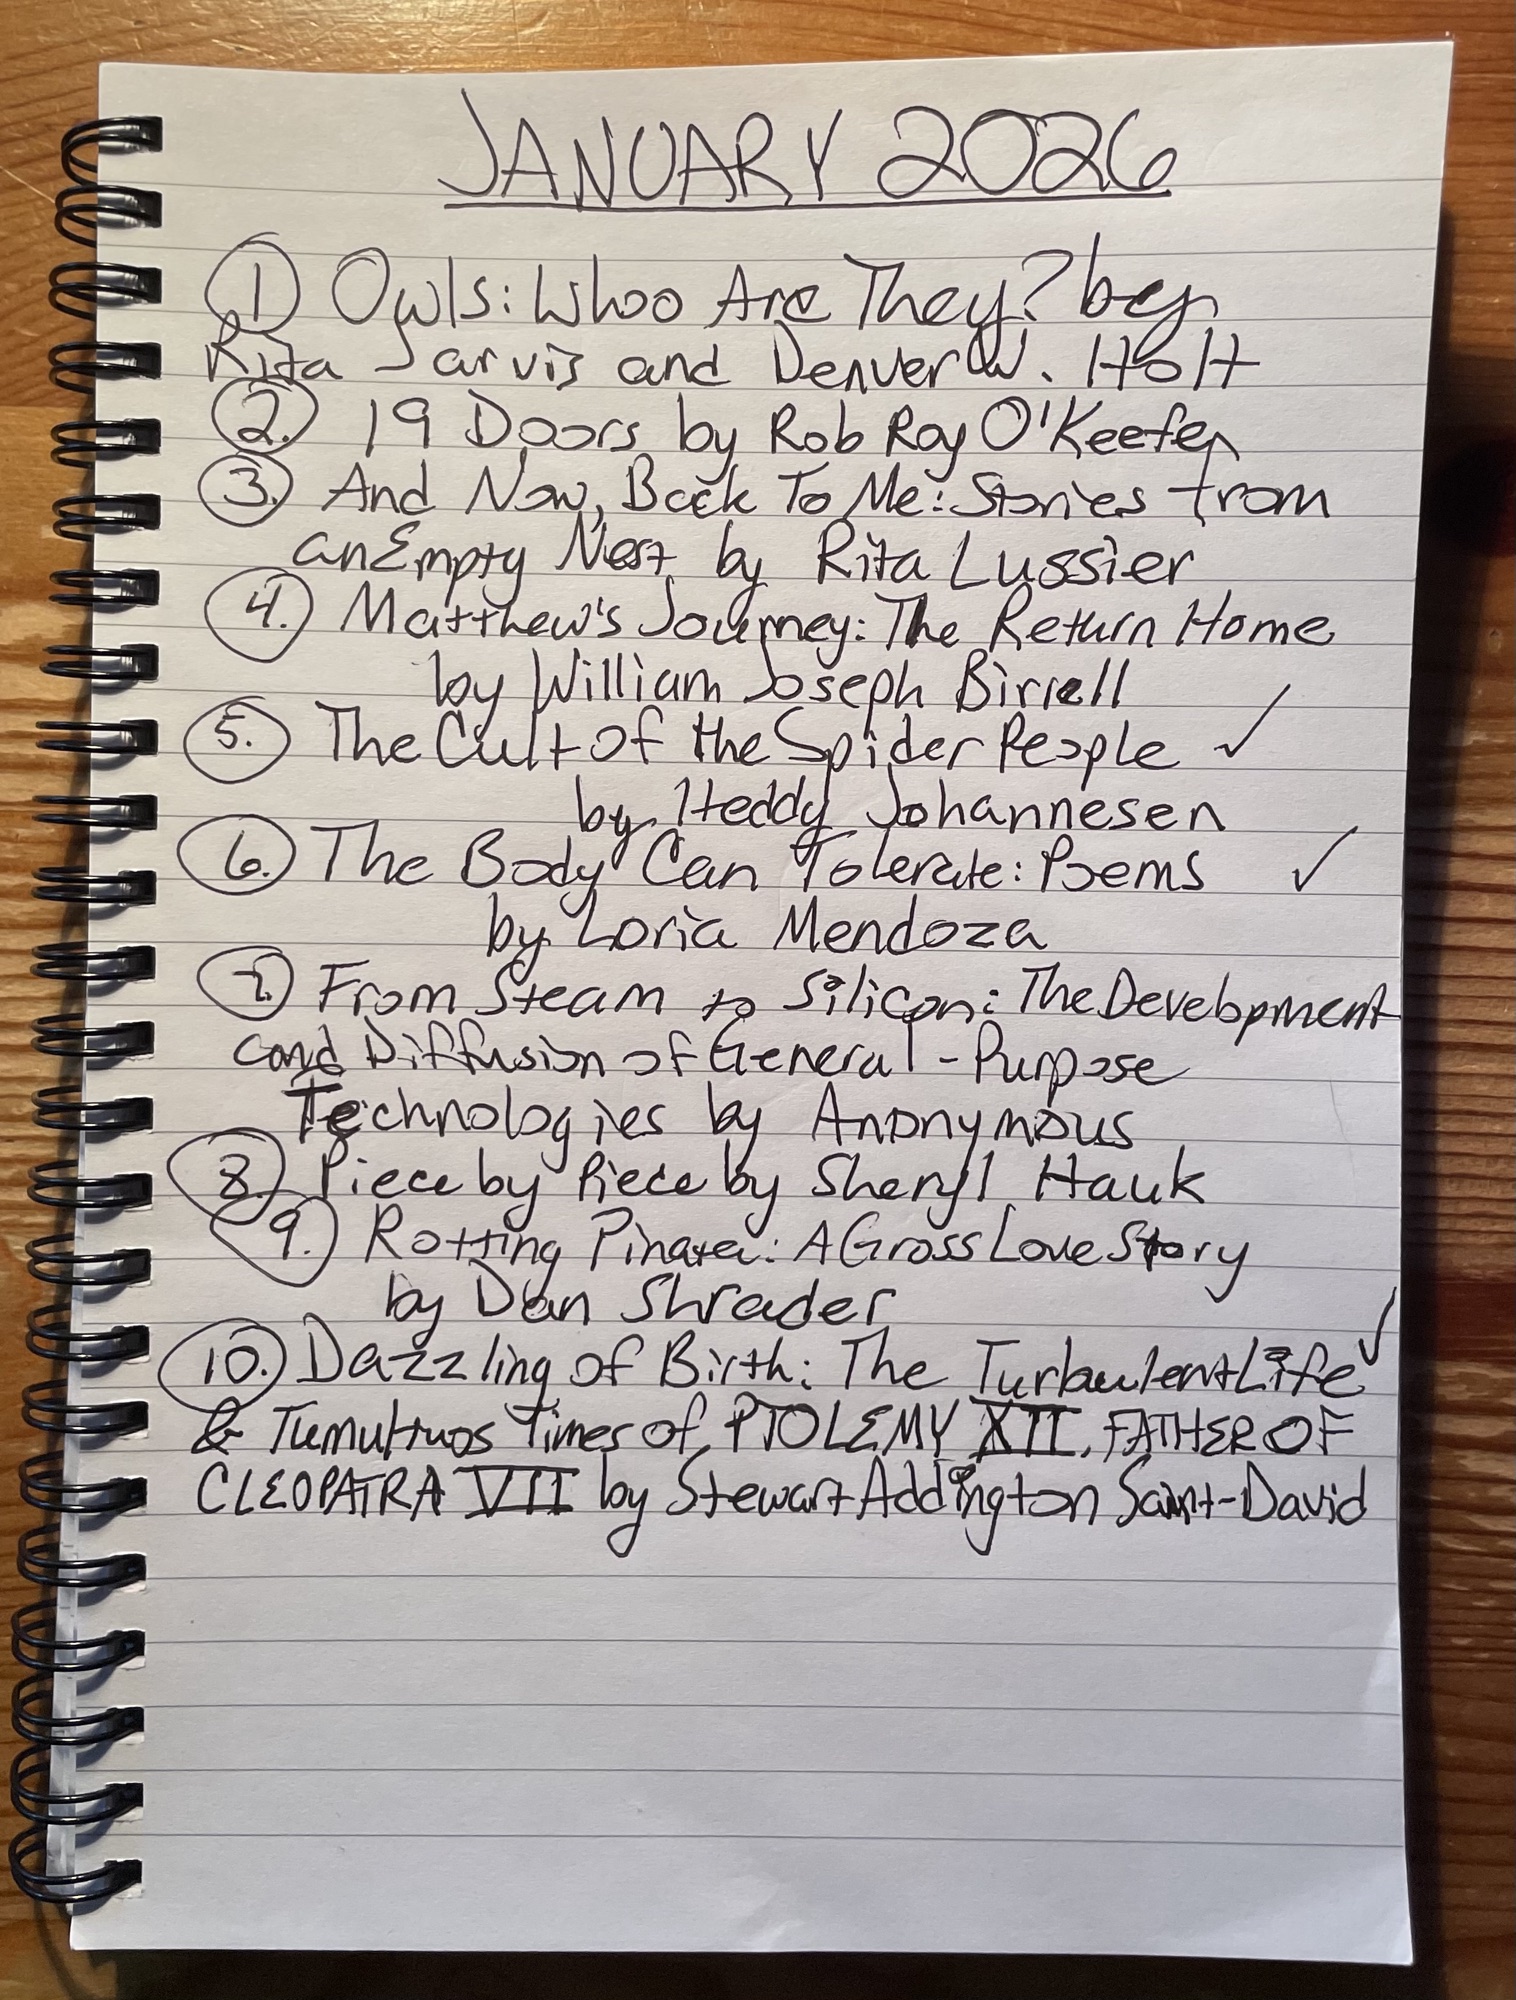 JANUARY 2026
1 Owls: Whoo Are They? by
Rita Jarvis and Denver W. Holt
2. 19 Doors by Rob Roy O'Keefe
3. And Now, Back To Me: Stories from
an Empty Nest by Rita Lussier
4. Matthew's Journey: The Return Home
by William Joseph Birrell
5. The Cult of the Spider People ✓
by Heddy Johannesen
6. The Body Can Tolerate: Poems ✓
by Loria Mendoza
7. From Steam to Silicon: The Development
and Diffusion of General-Purpose
Technologies by Anonymous
8. Piece by Piece by Sheryl Hauk
9. Rotting Pinata: A Gross Love Story
by Dan Shrader
10. Dazzling of Birth: The Turbulent Life ✓
& Tumultuos Times of PTOLEMY XII, FATHER OF
CLEOPATRA VII by Stewart Addington Saint-David